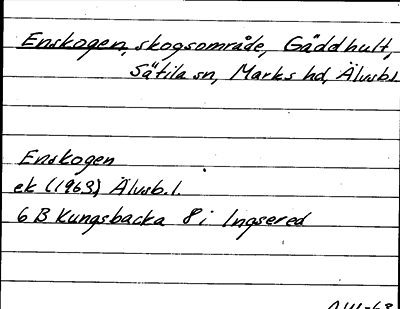 Enskogen, skogsområde, Gäddhult,
Sätila sn, Marks hd, Älvsb.l
Enskogen
ek (1963) Älvsb.l.
6 B Kungsbacka 8 i Ingsered